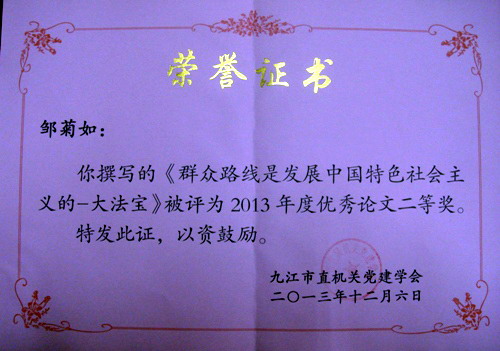 荣誉证书
邹菊如：
你撰写的《群众路线是发展中国特色社会主
义的-大法宝》被评为2013年度优秀论文二等奖。
特发此证，以资鼓励。
九江市直机关党建学会
二〇一三年十二月六日